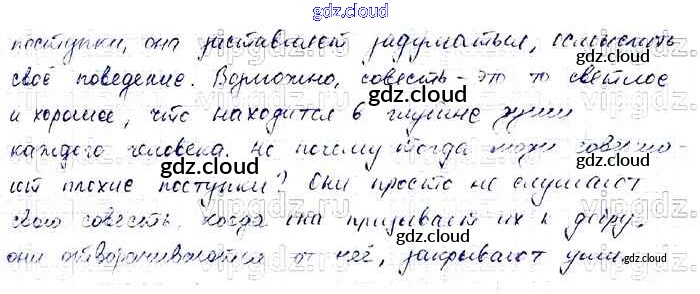 gdz.cloud
поступки, она заставляет задуматься, осмыслить
своё поведение. Возможно, совесть - это то светлое
и хорошее, что находится в глубине души
каждого человека. Но почему тогда люди соверша-
ют плохие поступки? Они просто не слушают
свою совесть, когда она призывает их к добру,
они отворачиваются от неё, закрывают уши.